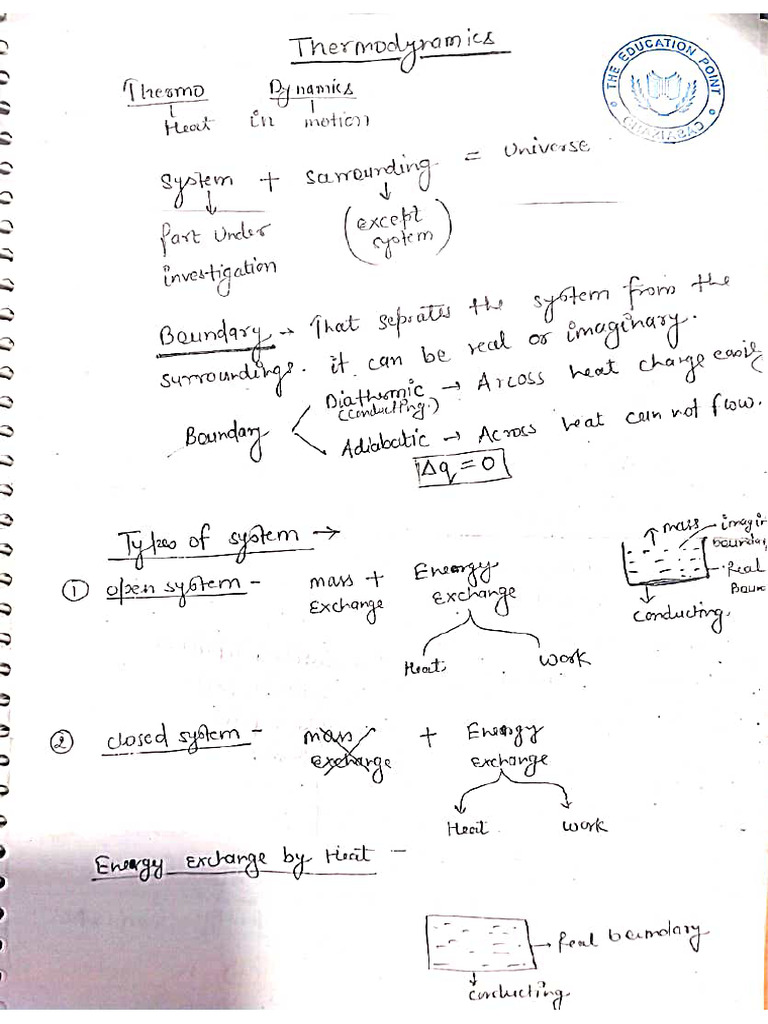 Thermodynamics
THE EDUCATION POINT
Thermo Dynamics
Heat in motion
System + Sarrounding = Universe
Part Under investigation
(except system)
Boundary → That seprates the system from the
surroundings. it can be real or imaginary.
Boundary
Diathermic → Arcoss heat charge easily
(conducting.)
Adiabatic → Across heat can not flow.
Δq = 0
Types of system →
① open system - mass + Energy
exchange exchange
Heat work
mass
imagin
boundary
Real
Boun
conducting.
② closed system - mass + Energy
exchange exchange
Heat work
Energy exchange by Heat -
Real boundary
conducting.